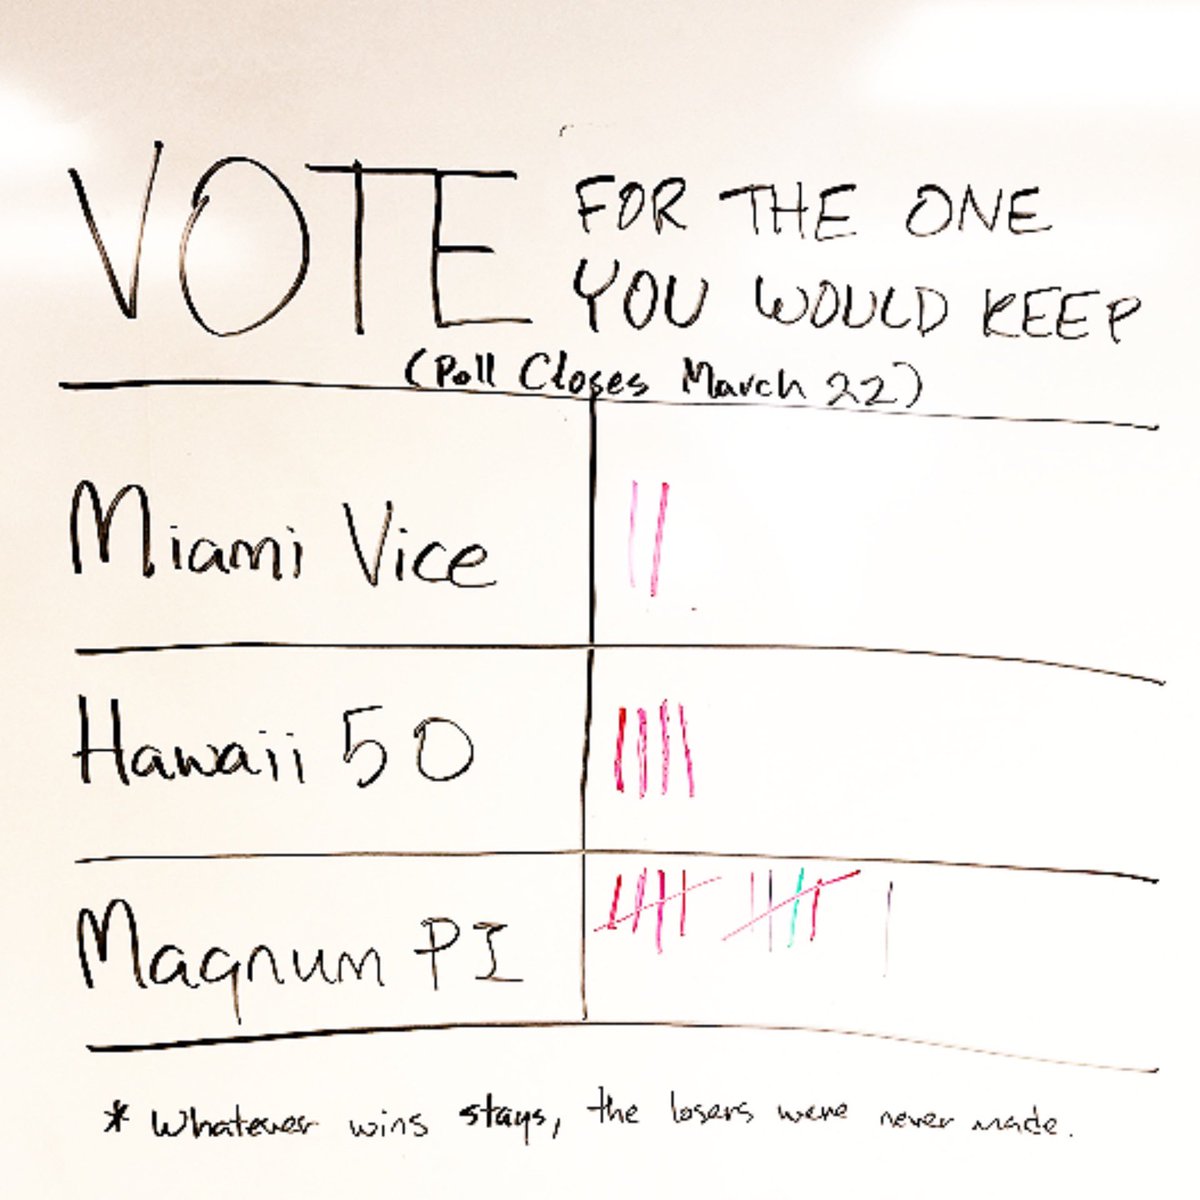 VOTE FOR THE ONE
YOU WOULD KEEP
(Poll Closes March 22)
Miami Vice
Hawaii 50
Magnum PI
* Whatever wins stays, the losers were never made.